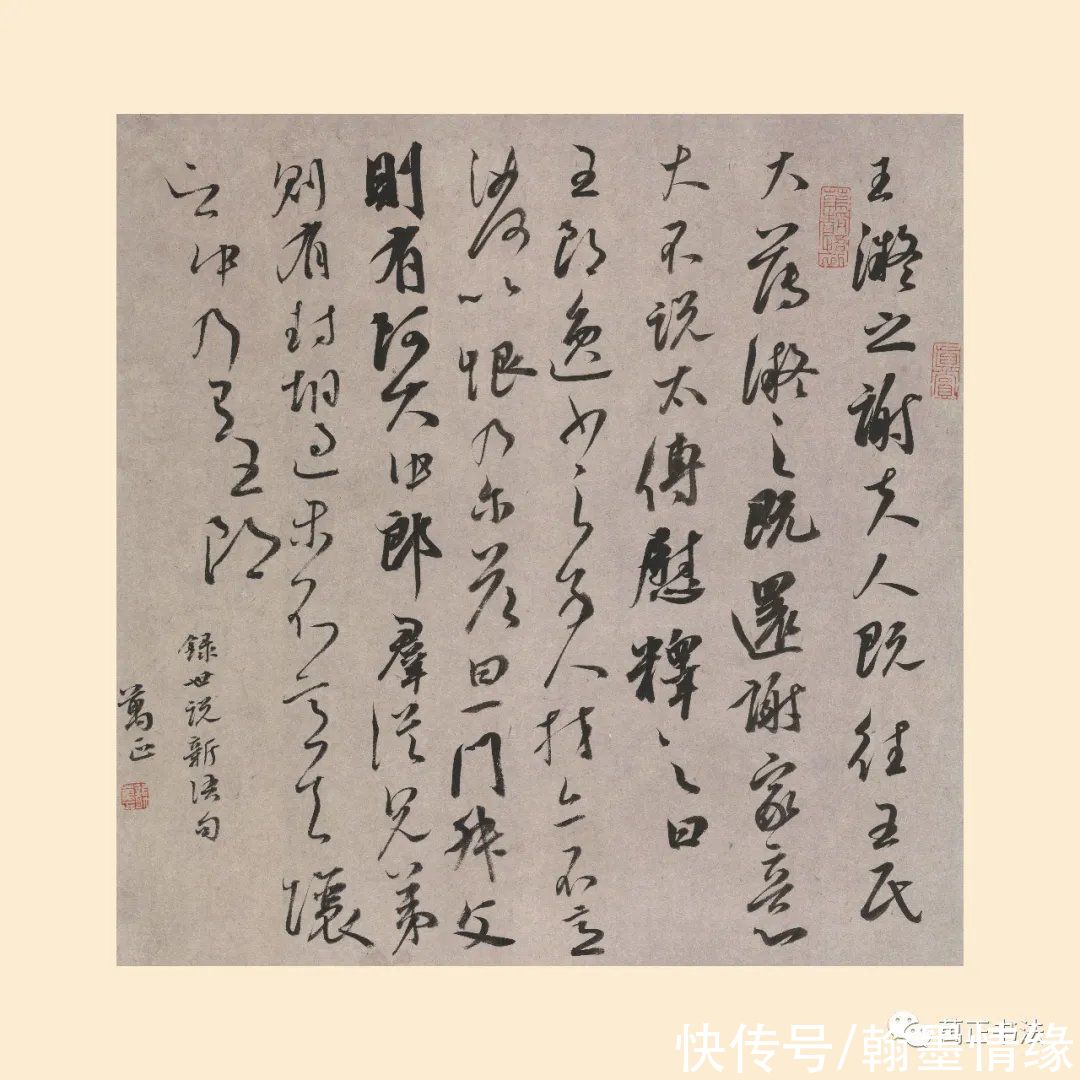 王凝之謝夫人既往王氏
大薄凝之既還謝家意
大不说太傅慰釋之曰
王郎逸少之子人材亦不惡
汝何以恨乃尔答曰一門叔父
則有阿大中郎羣從兄弟
則有封胡遏末不意天壤
之中乃有王郎
錄世说新语句
萬正
真賞
萬正书法
快传号/翰墨情缘